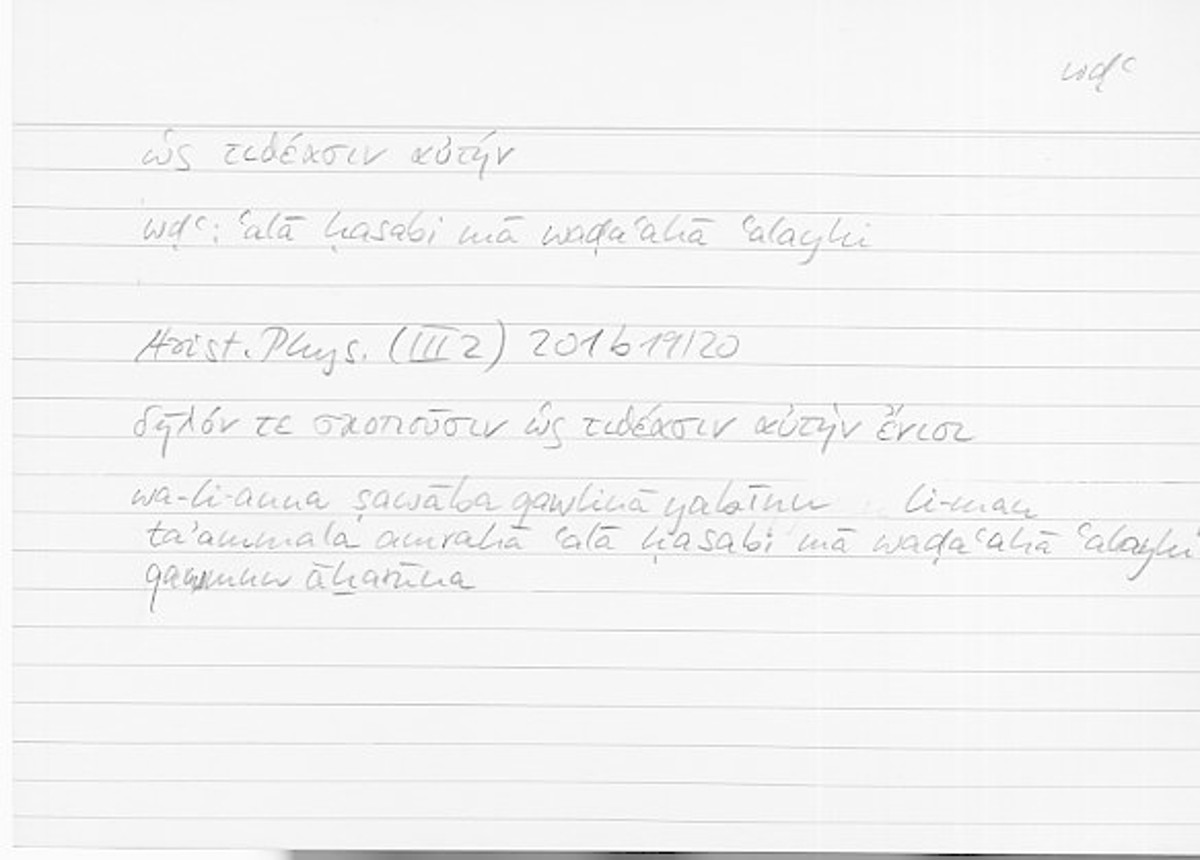 wḍʿ
ὡς τιθέασιν αὐτήν
wḍʿ: ʿalā ḥasabi mā waḍaʿahā ʿalayhi
Arist. Phys. (III 2) 201 b 19/20
δῆλόν τε σκοποῦσιν ὡς τιθέασιν αὐτὴν ἔνιοι
wa-li-anna ṣawāba qawlinā yabīnu li-man
taʾammala amrahā ʿalā ḥasabi mā waḍaʿahā ʿalayhi
qawmun āḫarūna